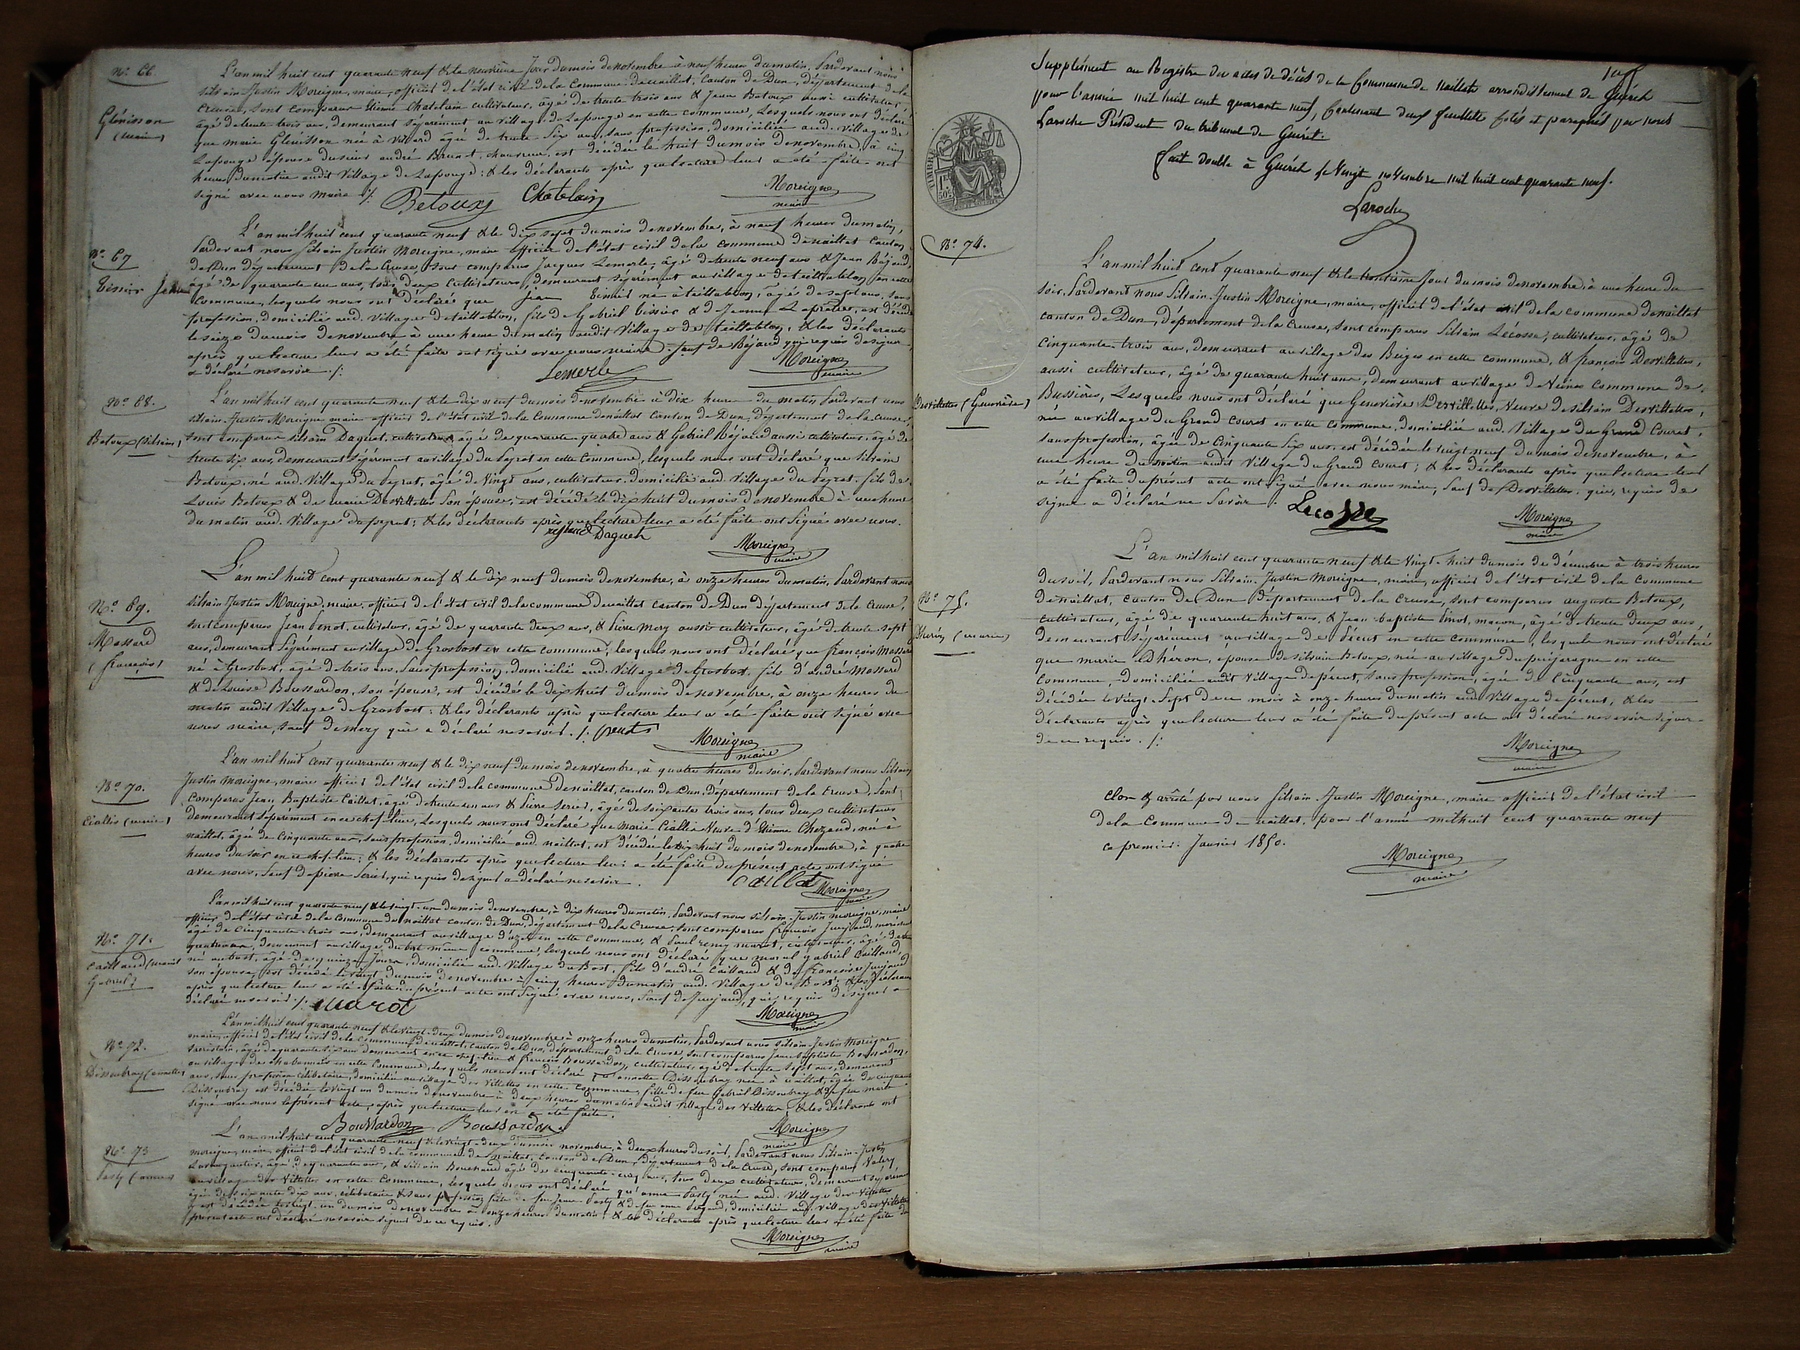 N° 66.
Glénisson
(marie)
L'an mil huit cent quarante neuf & le neuvième Jour du mois de novembre à neuf heures du matin, Pardevant nous
silvain Justin Moreigne, maire, officier de l'état civil de la Commune de naillat, Canton de Dun, département de la
Creuse, sont comparus Chatelain cultivateur, âgé de trente trois ans & Jean Betoux aussi cultivateur,
âgé de trente trois ans, demeurant séparément au village de Lapouge en cette commune, Lesquels nous ont déclaré
que marie Glénisson née à Villard âgé de trente six ans, sans profession, domiciliée aud. village de
Lapouge épouse du sieur andré Brunat, est décédée le huit du mois de novembre, à cinq
heures du matin audit Village de Lapouge : & les déclarants après que lecture leur a été faite ont
signé avec nous maire ./.
Betoux Chatelain Moreigne
maire
N° 67
Tessier Jean
L'an mil huit cent quarante neuf & le dix sept du mois de novembre, à neuf heures du matin,
Pardevant nous Silvain Justin Moreigne, maire officier de l'état civil de la commune de naillat canton
de Dun département de la Creuse, sont comparus Jacques Lemerle, âgé de trente neuf ans & Jean Béjaud,
âgé de quarante un ans, tous deux Cultivateurs, demeurant séparément au village de teillablon, en cette
Commune, lesquels nous ont déclaré que jean Tessier né à teillablon, âgé de sept ans, sans
profession, domicilié aud. village de teillablon, fils de Gabriel Tessier & de Jeanne Leprâtre, est décédé
le seize du mois de novembre à une heure du matin audit Village de teillablon, & les déclarants
après que lecture leur a été faite ont signé avec nous maire, sauf de Bejaud qui requis de signer
a déclaré ne savoir ./.
Lemerle Moreigne
maire
N° 68.
Betoux (silvain)
L'an mil huit cent quarante neuf & le dix neuf du mois de novembre à dix heures du matin Pardevant nous
silvain Justin Moreigne maire officier de l'état civil de la Commune de naillat Canton de Dun, département de la creuse,
sont comparus silvain Daguet, cultivateur, âgé de quarante quatre ans & Gabriel Béjaud aussi cultivateur, âgé de
trente six ans, demeurant séparément au village du Peyrat en cette Commune, lesquels nous ont déclaré que silvain
Betoux, né aud. Village du Peyrat, âgé de Vingt ans, cultivateur domicilié aud. Village du Peyrat, fils de
Louis Betoux & de marie Desvillettes son épouse, est décédé le dix huit du mois de novembre à une heure
du matin aud. Village du peyrat : & les déclarants après que lecture leur a été faite ont signé avec nous.
Daguet
Moreigne
maire
N° 69.
Massard
(françois)
L'an mil huit cent quarante neuf & le dix neuf du mois de novembre, à onze heures du matin, Pardevant nous
silvain Justin Moreigne, maire, officier de l'état civil de la commune de naillat canton de Dun département de la Creuse,
sont comparus Jean Penot, cultivateur, âgé de quarante deux ans, & Pierre Mery aussi cultivateur, âgé de trente sept
ans, demeurant séparément au village de Grosbost en cette commune, lesquels nous ont déclaré que françois Massard
né à Grosbost, âgé de trois ans, sans profession, domicilié aud. Village de Grosbost, fils d'andré Massard
& de Louise Boussardon, son épouse, est décédé le dix huit du mois de novembre, à onze heures du
matin audit Village de Grosbost : & les déclarants après que lecture leur a été faite ont signé avec
nous maire, sauf de mery qui a déclaré ne savoir ./.
Moreigne
maire
N° 70.
Ciallis (marie)
L'an mil huit cent quarante neuf & le dix neuf du mois de novembre, à quatre heures du soir, Pardevant nous Silvain
Justin moreigne, maire officier de l'état civil de la commune de naillat, canton de Dun, Département de la Creuse, Sont
comparus Jean Baptiste Caillat, âgé de trente un ans & Pierre Seriès, âgé de soixante trois ans, tous deux cultivateurs
demeurant séparément en ce chef-lieu, Lesquels nous ont déclaré que Marie Veuve d'étienne Chezaud, née à
naillat, âgée de Cinquante ans, sans profession, domiciliée aud. naillat, est décédée le dix huit du mois de novembre, à quatre
heures du soir en ce chef-lieu ; & les déclarants après que lecture leur a été faite du présent acte ont signé
avec nous, sauf de pierre Seriès, qui requis de signer a déclaré ne savoir.
Caillat Moreigne
maire
N° 71.
Caillaud (marial
Gabriel)
L'an mil huit cent quarante neuf & le vingt-un du mois de novembre, à dix heures du matin, Pardevant nous silvain Justin moreigne, maire
officier de l'état civil de la Commune de naillat canton de Dun, département de la Creuse, sont comparus françois
âgé de cinquante-trois ans, demeurant au village en cette commune, & Paul remy marot, cultivateur, âgé de
demeurant au village du bost même commune, lesquels nous ont déclaré que gabriel Caillaud
né au bost, âgé de quinze Jours, domicilié aud. Village du Bost, fils d'andré Caillaud & de françoise
son épouse, est décédé le vingt du mois de novembre à cinq heures du matin aud. Village du Bost & les déclarants
après que lecture leur a été faite du présent acte ont signé avec nous, sauf de qui requis de signer a
déclaré ne savoir ./.
Marot Moreigne
maire
N° 72.
Dissoubray (annette)
L'an mil huit cent quarante neuf & le vingt-deux du mois de novembre à onze heures du matin, Pardevant nous silvain Justin Moreigne
maire, officier de l'état civil de la commune de naillat, canton de Dun, département de la Creuse, sont comparus jean-baptiste Boussardon,
sacristain, âgé de quarante six ans demeurant en ce chef-lieu & françois Boussardon, cultivateur, âgé de trente sept ans, demeurant
au village de en cette Commune, lesquels nous ont déclaré que annette Dissoubray née à naillat, âgée de cinquante
ans, sans profession célibataire, domiciliée au village des Villettes en cette commune, fille de feu Gabriel Dissoubray & de feu marie
Dissoubray est décédée le vingt un du mois de novembre à deux heures du matin audit village des Villettes, & les déclarants ont
signé avec nous le présent acte, après que lecture leur en a été faite.
Boussardon Boussardon Moreigne
maire
N° 73
Pasty (anne)
L'an mil huit cent quarante neuf & le vingt-deux du mois novembre, à deux heures du soir, Pardevant nous Silvain-Justin
moreigne, maire, officier de l'état civil de la commune de naillat, canton de Dun, département de la Creuse, sont comparus
âgé de quarante ans, & silvain âgé de cinquante-cinq ans, tous deux cultivateurs, demeurant séparément
au village des Villettes en cette Commune, lesquels nous ont déclaré qu'anne Pasty née aud. Village des Villettes
âgée de soixante dix ans, célibataire & sans profession, fille de feu Jean Pasty & de feu anne Péjaud, domiciliée aud. village des Villettes
est décédée le vingt-un du mois de novembre à onze heures du matin : & les déclarants après que lecture leur a été faite du
présent acte ont déclaré ne savoir signer de ce requis.
Moreigne
maire
Supplément au Registre des actes de décès de la Commune de Naillat arrondissement de Guéret
pour l'année mil huit cent quarante neuf, Contenant deux feuillets cotés et paraphés par nous
Laroche Président du tribunal de Guéret.
fait double à Guéret le Vingt novembre mil huit cent quarante neuf.
Laroche
TIMBRE
N° 74.
Desvillettes (Geneviève)
L'an mil huit cent quarante neuf & le trentième Jour du mois de novembre à une heure du
soir, Pardevant nous Silvain-Justin Moreigne, maire, officier de l'état civil de la commune de naillat
canton de Dun, département de la Creuse, sont comparus Silvain Lécosse, cultivateur, âgé de
Cinquante-trois ans, demeurant au village des Beiges en cette commune, & françois Desvillettes,
aussi cultivateur, âgé de quarante huit ans, demeurant au village de Commune de
Bussières, Lesquels nous ont déclaré que Geneviève Desvillettes, veuve de silvain Desvillettes,
née au village du Grand Couret en cette commune, domiciliée aud. Village du Grand Couret,
sans profession, âgée de Cinquante six ans, est décédée le vingt neuf du mois de novembre, à
une heure du matin audit Village du Grand Couret ; & les déclarants après que lecture leur
a été faite du présent acte ont signé avec nous maire, sauf de Desvillettes, qui, requis de
signer a déclaré ne savoir.
Lecosse Moreigne
maire
N° 75.
Dhéron (marie)
L'an mil huit cent quarante neuf & le vingt-huit du mois de décembre à trois heures
du soir, Pardevant nous Silvain-Justin Moreigne, maire, officier de l'état civil de la commune
de naillat, canton de Dun département de la Creuse, sont comparus auguste Betoux,
cultivateur, âgé de quarante huit ans, & Jean-baptiste Pinot, maçon, âgé de trente deux ans,
demeurant séparément au village de Péient en cette commune, lesquels nous ont déclaré
que marie Dhéron, épouse de silvain Betoux, née au village du puigaragne en cette
Commune, domiciliée audit village de péient, sans profession, âgée de Cinquante ans, est
décédée le vingt-sept de ce mois à onze heures du matin aud. Village de péient, & les
déclarants après que lecture leur a été faite du présent acte ont déclaré ne savoir signer
de ce requis. ./.
Moreigne
maire
Clos & arrêté par nous Silvain-Justin Moreigne, maire officier de l'état civil
de la Commune de naillat, pour l'année mil huit cent quarante neuf
ce premier Janvier 1850.
Moreigne
maire